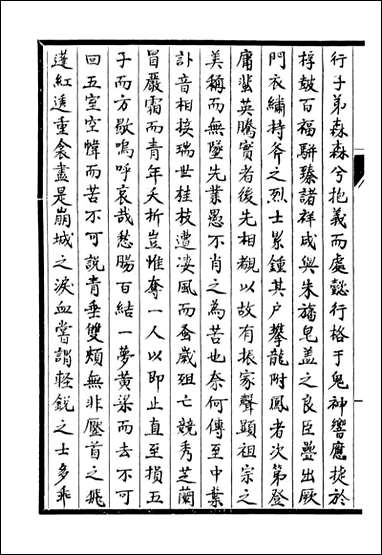 行子弟森森兮抱義而處懿行格于鬼神響應捷於
桴皷百福駢臻諸祥咸與朱旛皂盖之良臣疊出厥
門衣繡持斧之烈士累鍾其戸攀龍附鳳者次第登
庸蜚英騰實者後先相覩以故有振家聲顯祖宗之
美稱而無墜先業愚不肖之為苦也奈何傳至中葉
訃音相接瑞世桂枝遭凄風而蚤歲殂亡競秀芝蘭
冒嚴霜而青年夭折豈惟奪一人以即止直至損五
子而方歇嗚呼哀哉愁腸百結一夢黄梁而去不可
回五室空幃而苦不可説青垂雙頰無非壓首之飛
蓬紅透重衾盡是崩城之淚血嘗謂輕鋭之士多乖